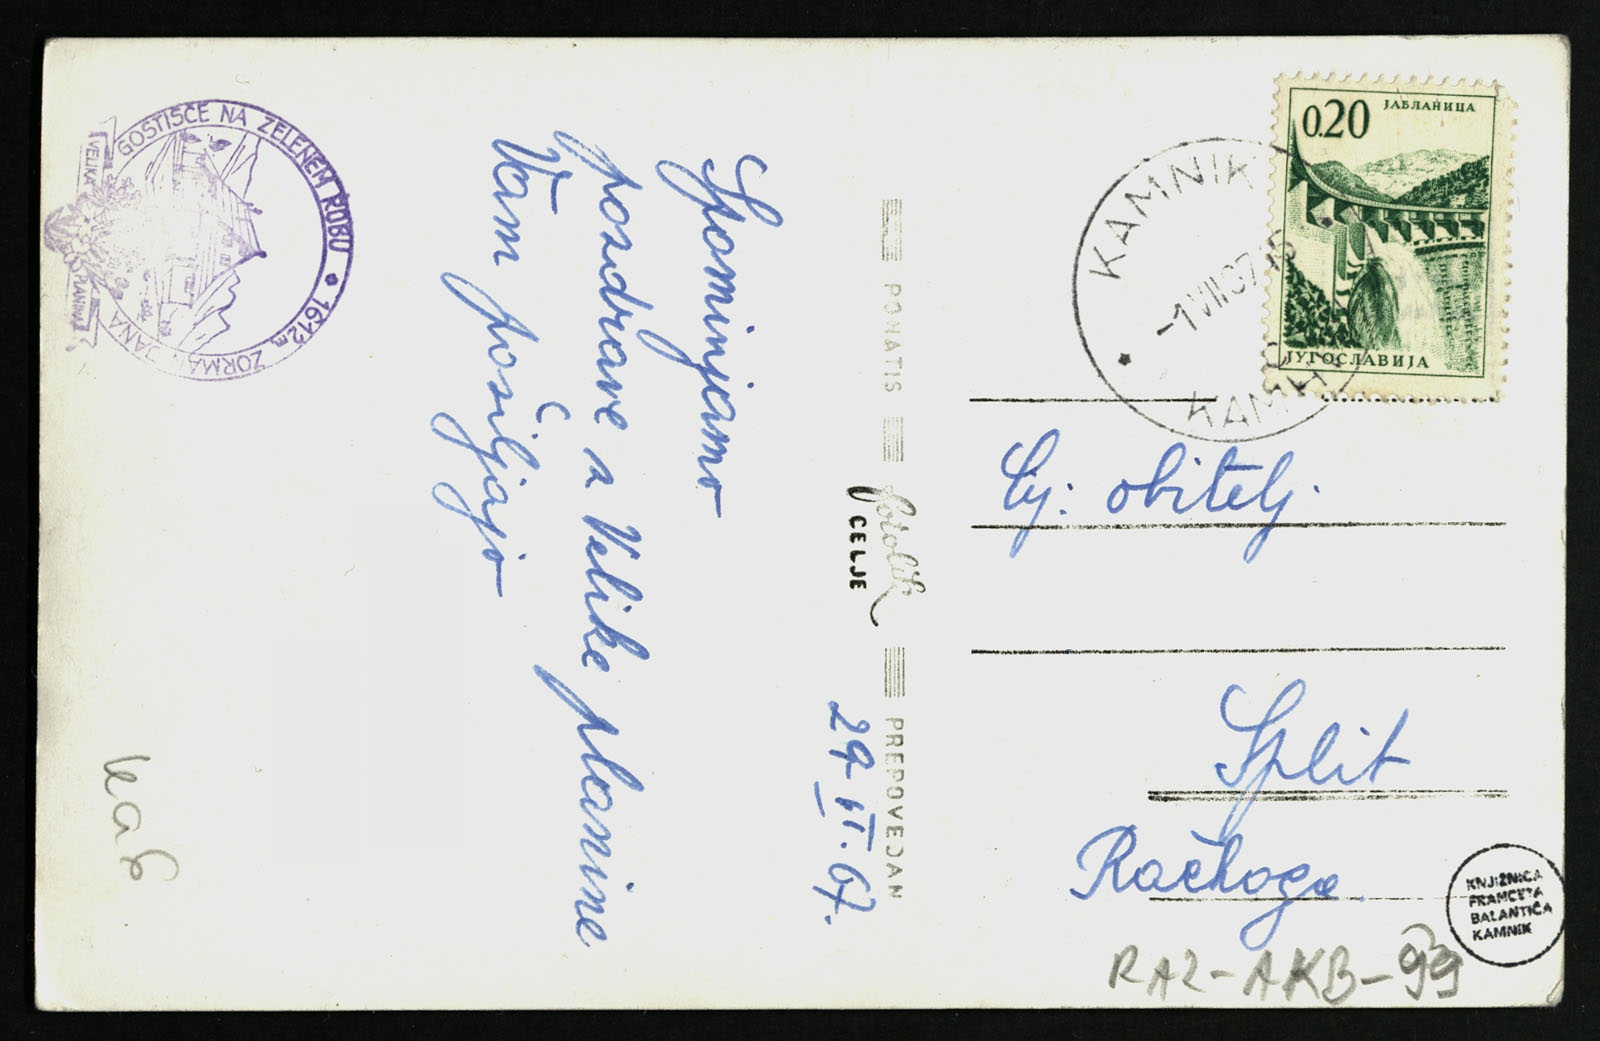 GOSTIŠČE NA ZELENEM ROBU • 1612m
ZORMAN JANA
VELIKA
PLANINA
Spominjamo
pozdrave z Velike planine
Vam pošiljajo
29. VII. 67.
PONATIS
fotolik
CELJE
PREPOVEDAN
0.20
ЈАБЛАНИЦА
ЈУГОСЛАВИЈА
KAMNIK
-1 VIII 67-15
КАМНИК
Cj: obitelj.
Split
Račkoga.
KNJIŽNICA
FRANCETA
BALANTIČA
KAMNIK
RAZ-AKB-99